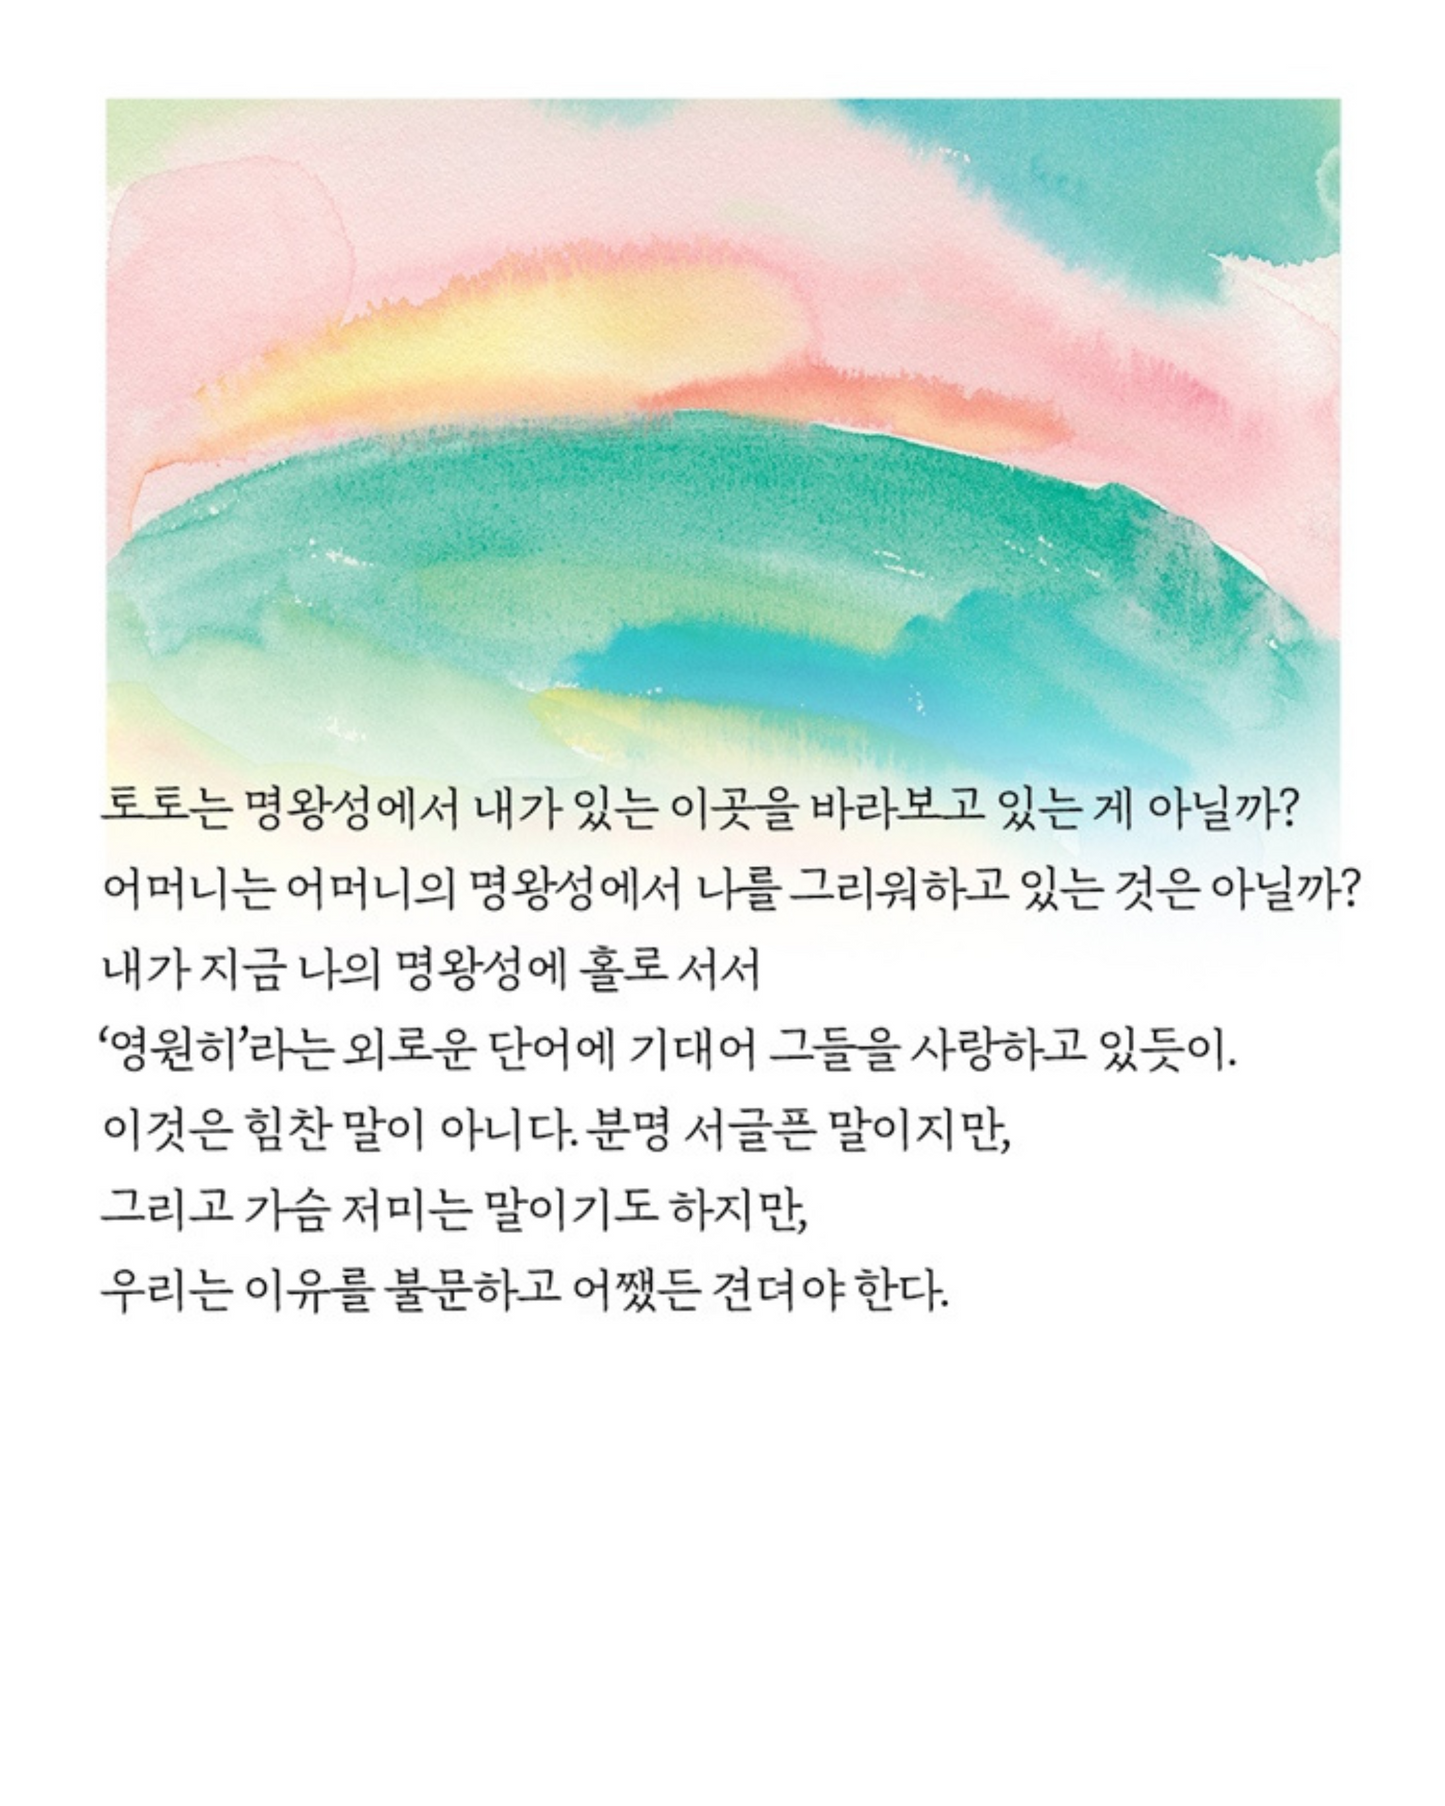 토토는 명왕성에서 내가 있는 이곳을 바라보고 있는 게 아닐까?
어머니는 어머니의 명왕성에서 나를 그리워하고 있는 것은 아닐까?
내가 지금 나의 명왕성에 홀로 서서
‘영원히’라는 외로운 단어에 기대어 그들을 사랑하고 있듯이.
이것은 힘찬 말이 아니다. 분명 서글픈 말이지만,
그리고 가슴 저미는 말이기도 하지만,
우리는 이유를 불문하고 어쨌든 견뎌야 한다.